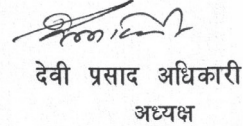 देवी प्रसाद अधिकारी
अध्यक्ष